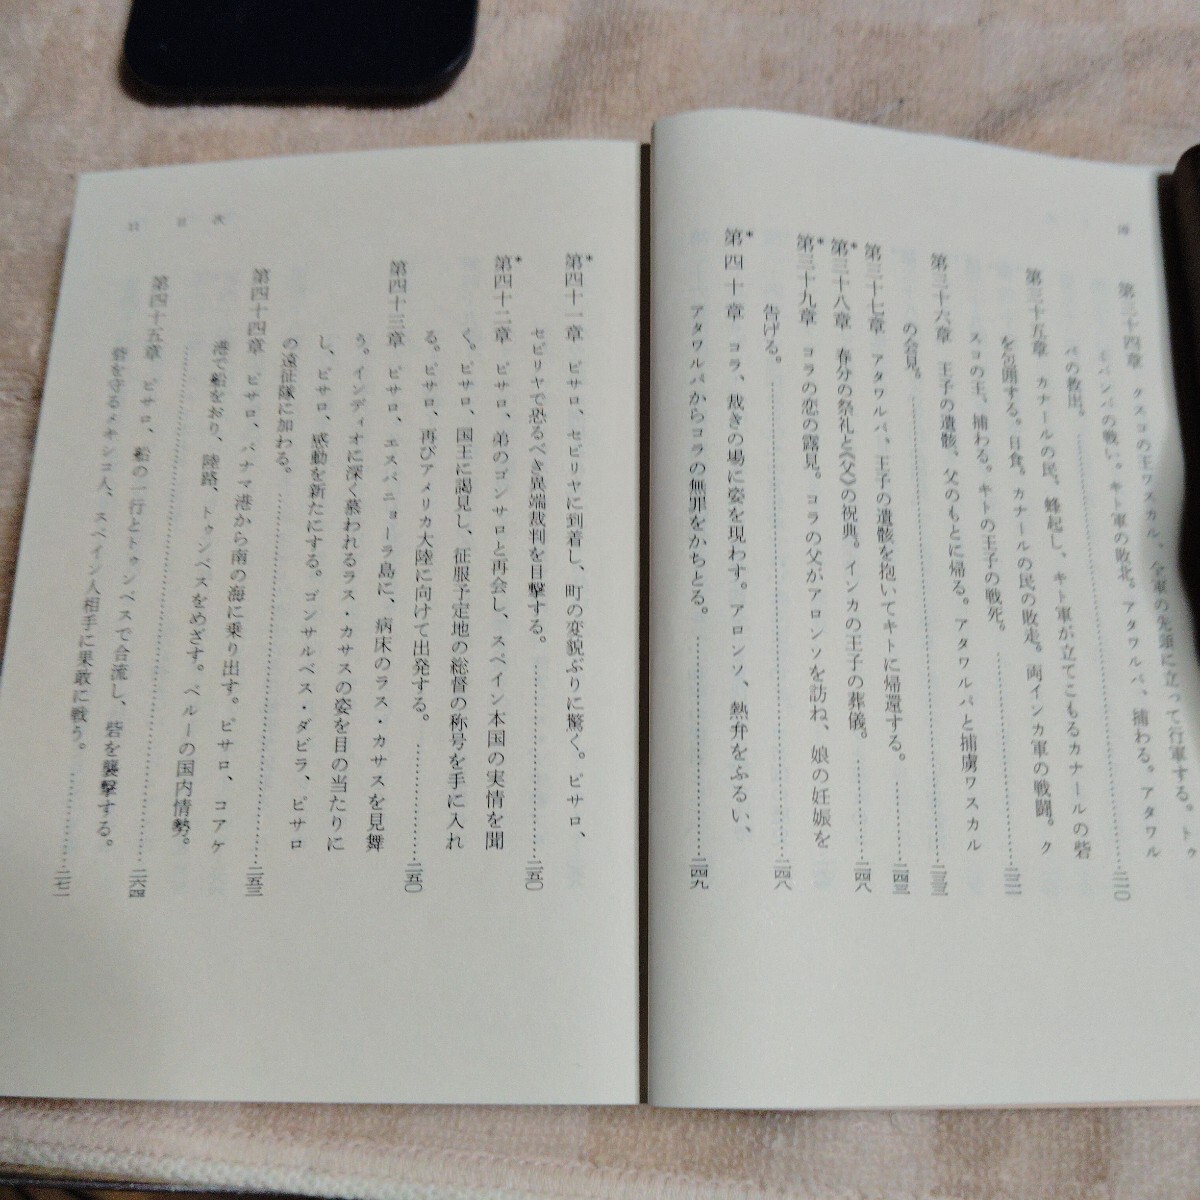 第三十四章　クスコの王ワスカル、全軍の先頭に立って行軍する。トゥ
ミバンバの戦い。キト軍の敗北。アタワルパ、捕わる。アタワル
パの救出。……二二〇
第三十五章　カナールの民、蜂起し、キト軍が立てこもるカナールの砦
を包囲する。日食。カナールの民の敗走。両インカ軍の戦闘。ク
スコの王、捕わる。キトの王子の戦死。……二二二
第三十六章　王子の遺骸、父のもとに帰る。アタワルパと捕虜ワスカル
の会見。……二三三
第三十七章　アタワルパ、王子の遺骸を抱いてキトに帰還する。……二四三
*第三十八章　春分の祭礼と《父》の祝典。インカの王子の葬儀。……二四八
*第三十九章　コラの恋の露見。コラの父がアロンソを訪ね、娘の妊娠を
告げる。……二四八
*第四十章　コラ、裁きの場に姿を現わす。アロンソ、熱弁をふるい、
アタワルパからコラの無罪をかちとる。……二四九
*第四十一章　ピサロ、セビリヤに到着し、町の変貌ぶりに驚く。ピサロ、
セビリヤで恐るべき異端裁判を目撃する。……二五〇
*第四十二章　ピサロ、弟のゴンサロと再会し、スペイン本国の実情を聞
く。ピサロ、国王に謁見し、征服予定地の総督の称号を手に入れ
る。ピサロ、再びアメリカ大陸に向けて出発する。……二五〇
第四十三章　ピサロ、エスパニョーラ島に、病床のラス・カサスを見舞
う。インディオに深く慕われるラス・カサスの姿を目の当たりに
し、ピサロ、感動を新たにする。ゴンサルベス・ダビラ、ピサロ
の遠征隊に加わる。……二五三
第四十四章　ピサロ、パナマ港から南の海に乗り出す。ピサロ、コアケ
港で船をおり、陸路、トゥンベスをめざす。ペルーの国内情勢。
……二六四
第四十五章　ピサロ、船の一行とトゥンベスで合流し、砦を襲撃する。
砦を守るメキシコ人、スペイン人相手に果敢に戦う。……二七二
目次
11